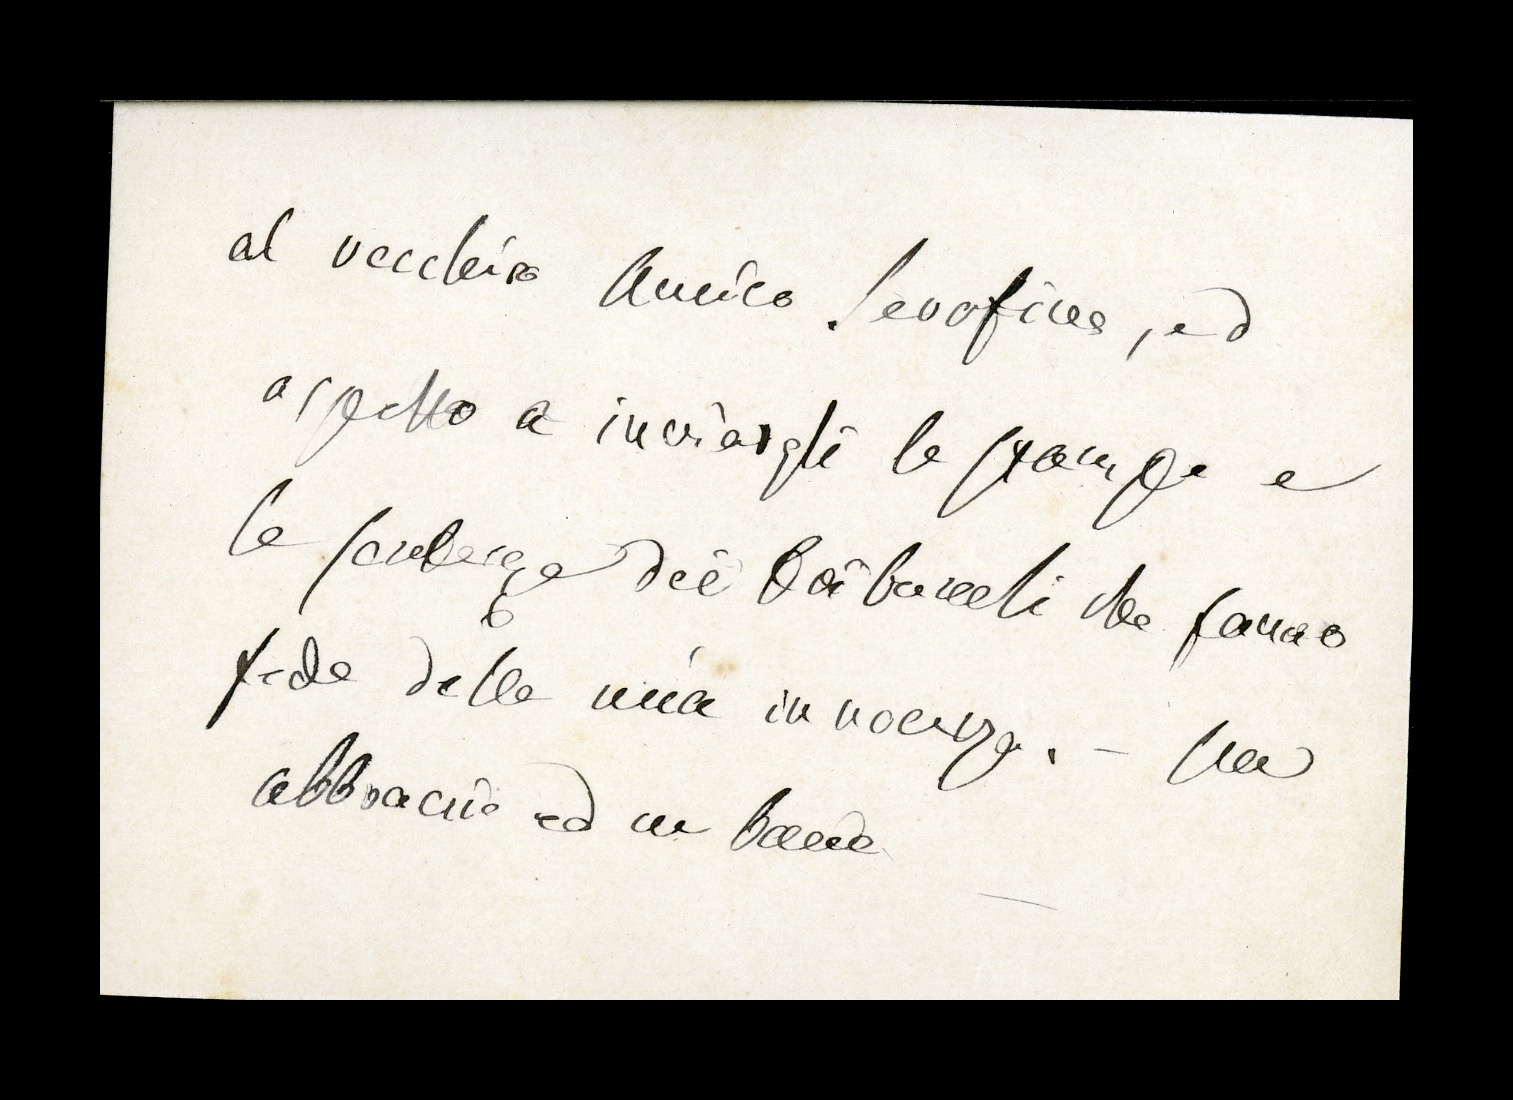 al vecchio Amico Serafino, ed
aspetto a inviargli le stampe e
le dei che fanno
fede della mia innocenza. – Un
abbraccio ed un bacio